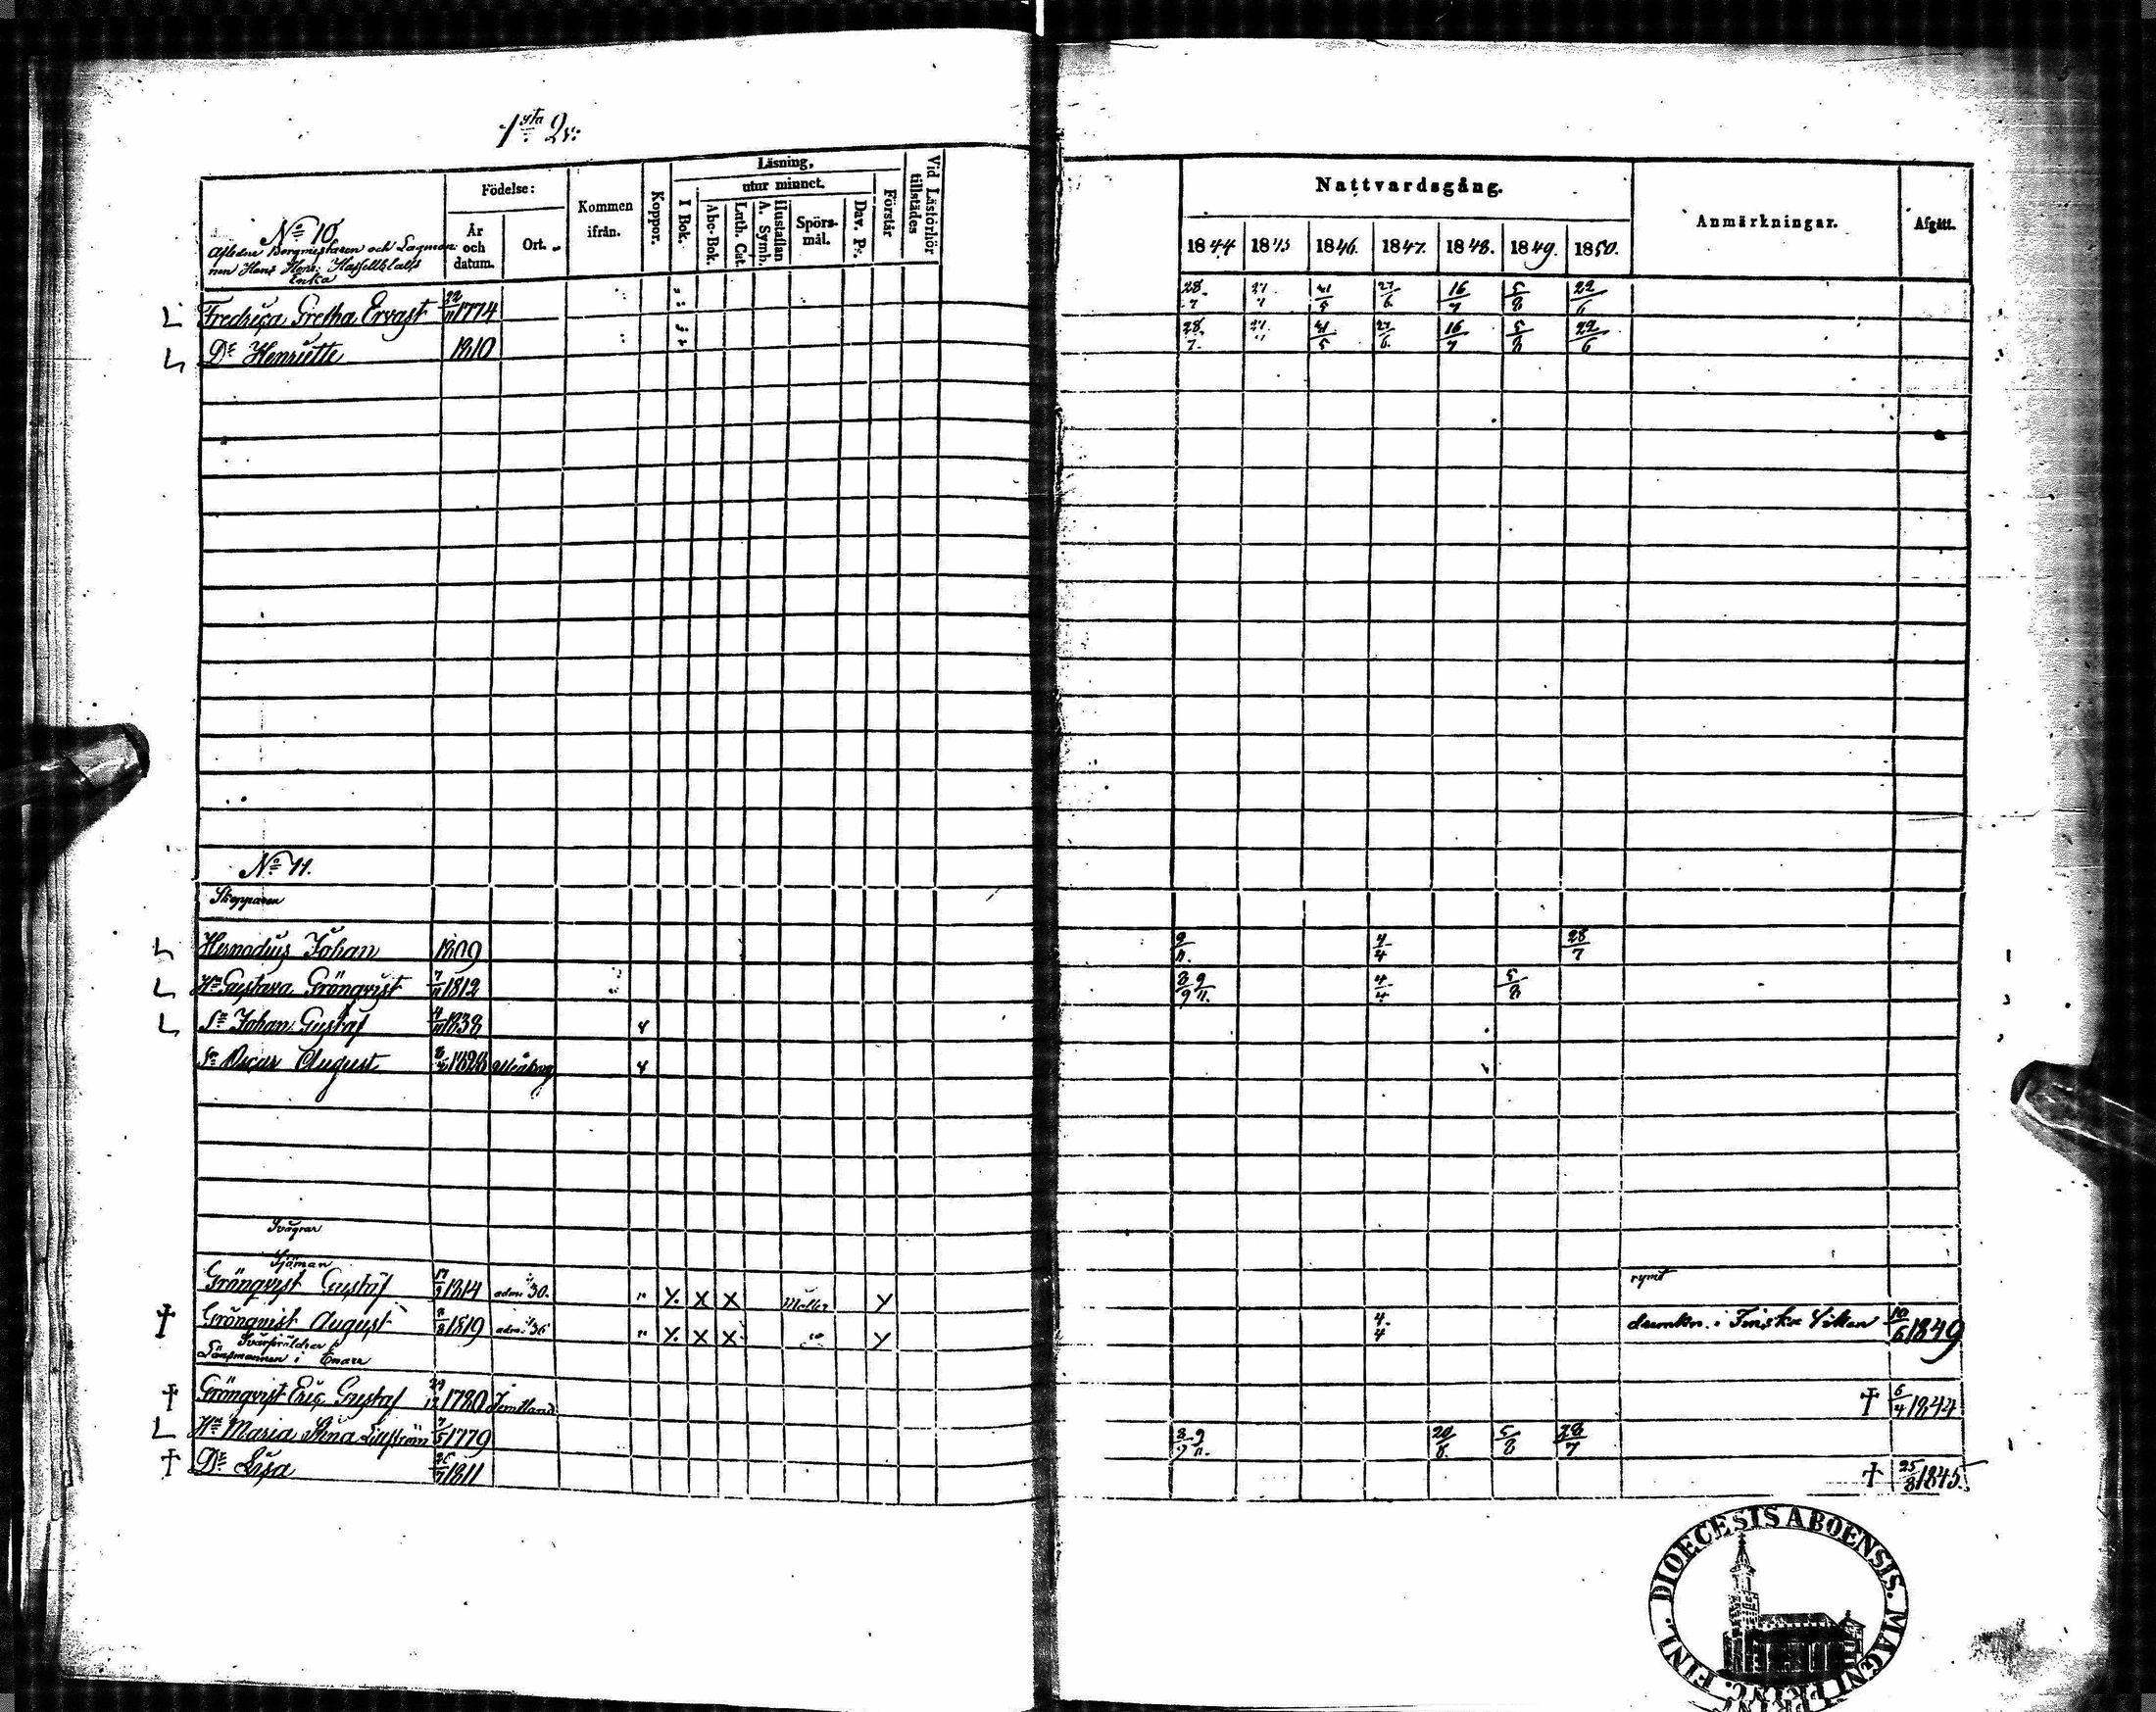 1sta Qv:
Födelse: Kommen ifrån. Koppor. Läsning, Vid Läsförhör tillstädes
utur minnet.
År och datum. Ort. I Bok. Abc-Bok. Luth. Cat. A. Symb. Hustaflan Spörs-mål. Dav. Ps. Förstår
Nattvardsgång. Anmärkningar. Afgått.
1844 1845 1846. 1847. 1848. 1849. 1850.
No 10
Afledne Borgmästaren och Lagman
nen Hans Henr: Hasselblatts
Enka
Fredrica Gretha Ervast 22/11 1774 28/7 31/5 27/6 16/7 5/8 22/6
Dr Henriette 1810 28/7 31/5 27/6 16/7 5/8 22/6
No 11.
Skepparen
Hernodius Johan 1809 9/11. 4/4 28/7
Hu Gustava Grönqvist 7/11 1812 8/9 9/11. 4/4 5/8
Sn Johan Gustaf 4/11 1838
Sn Oscar August Uleåborg
Svågrar
Sjöman
Grönqvist Gustaf 17/9 1814 adm. 30. " X. X X Möller X rymt
† Grönqvist August 1819 adm. 36 " X. X X X 4/4 drunkn. i Finska Viken 10/6 1849
Svärföräldrar
Länsmannen i Enare
† Grönqvist Eric Gustaf 1780 Jemtland † 6/4 1844
Hu Maria Stina 7/5 1779 8/9 9/11. 5/8 28/7
† Dr Lisa 1811 † 25/8 1845.
DIOECESIS ABOENSIS. MAGNI PRINC. FINL.